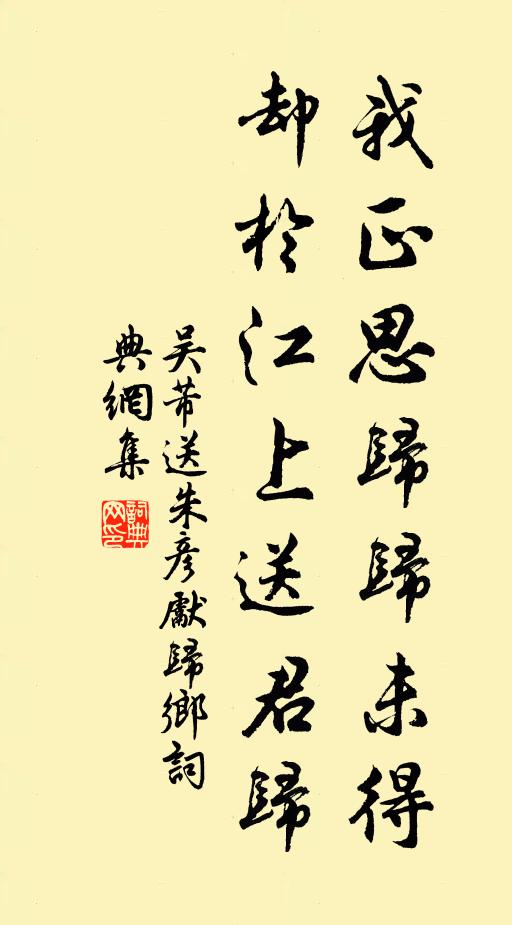 我正思歸歸未得
却於江上送君歸
吳芾送朱彥獻歸鄉詞
典網集
詞典
网印